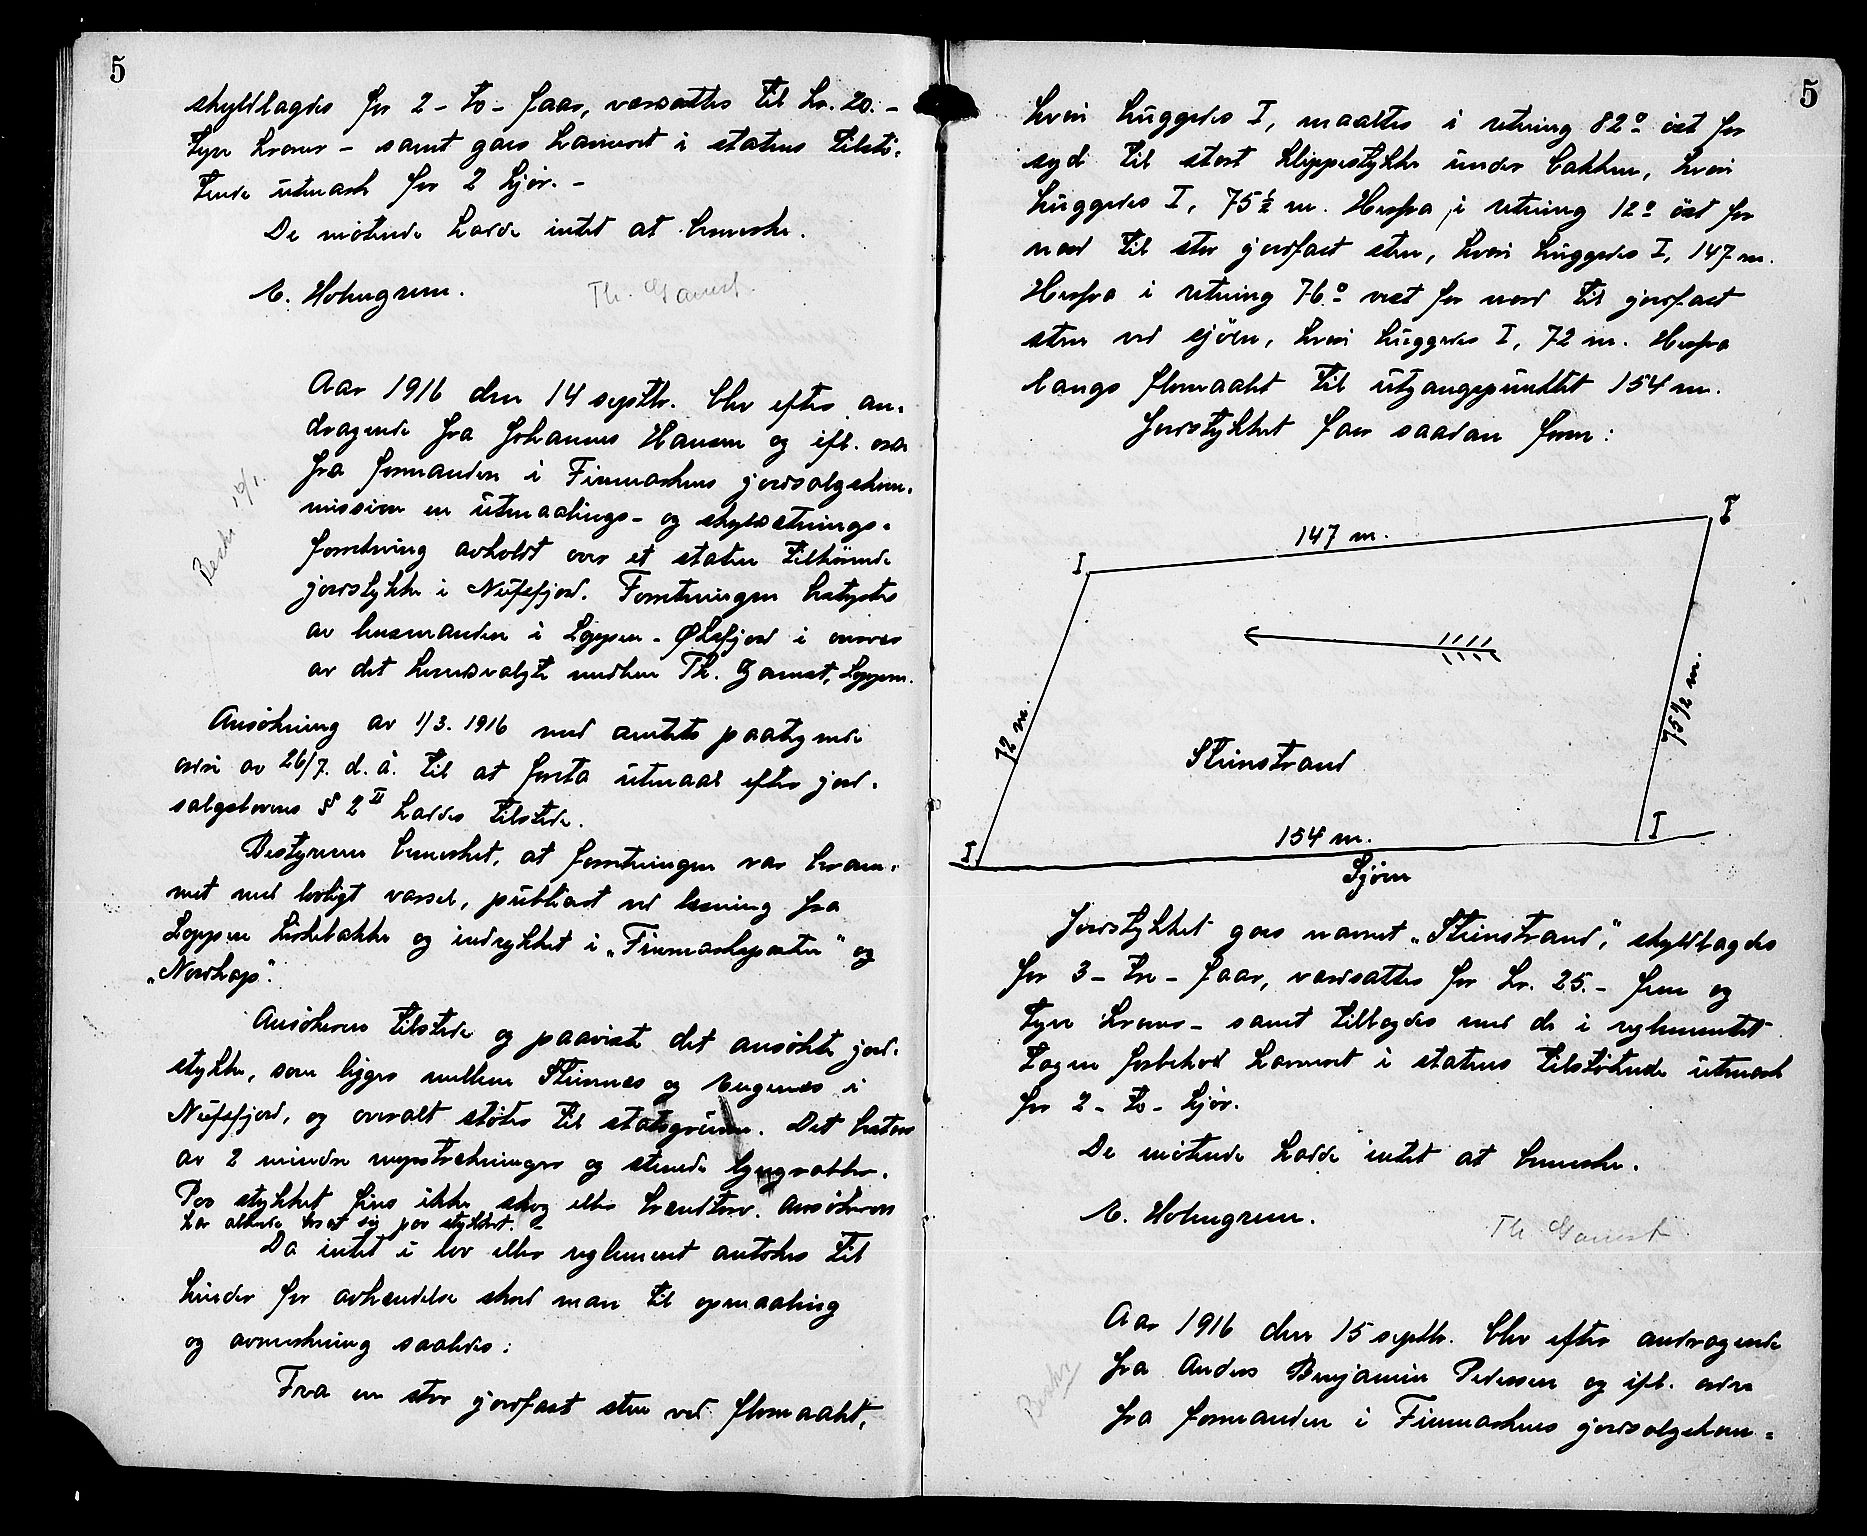 5
skyldlagdes for 2 - to - faar, værdsattes til kr. 20.-
tyve kroner - samt gaves havneret i statens tilstö-
tende utmark for 2 kjör. -
De mötende hadde intet at bemerke.
A. Holmgreen.
Th. Gamst.
Aar 1916 den 14 septbr. blev efter an-
dragende fra Johannes Hansen og ifl. ordre
fra formanden i Finmarkens jordsalgskom-
mission en utmaalings- og skyldsetnings-
forretning avholdt over et staten tilhörende
jordstykke i Nufsfjord. Forretningen bestyrtes
av lensmanden i Loppen - Öksfjord i overvær
av det herredsvalgte medlem Th. Gamst, Loppen.
Beskr. 10/1.
Ansökning av 1/3. 1916 med amtets paategnede
ordre av 26/7. d. å. til at foreta utmaal efter jord-
salgslovens § 2 II havdes tilstede.
Bestyreren bemerket, at forretningen var beram-
met med lovligt varsel, publicert ved læsning fra
Loppen kirkebakke og indrykket i „Finmarksposten" og
„Nordkap".
Ansökeren tilstede og paaviste det ansökte jord-
stykke, som ligger mellem Steinnes og Auganes i
Nufsfjord, og overalt stöter til statsgrund. Det bestaar
av 2 mindre myrstrækninger og stenede lyngrabber.
Paa stykket fins ikke skog eller brændtorv. Ansökeren
har allerede bosat sig paa stykket. -
Da intet i lov eller reglement antokes til
hinder for avhændelse skred man til opmaaling
og avmerkning saaledes:
Fra en stor jordfast sten ved flomaalet,
5
hvori huggedes I, maaltes i retning 82° öst for
syd til stort klippestykke under bakken, hvori
huggedes I, 75½ m. Herfra i retning 12° öst for
nord til stor jordfast sten, hvori huggedes I, 147 m.
Herfra i retning 76° vest for nord til jordfast
sten ved sjöen, hvori huggedes I, 72 m. Herfra
langs flomaalet til utgangspunktet 154 m.
Jordstykket faar saadan form:
147 m.
I
I
72 m.
75½ m.
Steinstrand
I
154 m.
I
Sjöen
Jordstykket gaves navnet „Steinstrand", skyldlagdes
for 3 - tre - faar, værdsattes for kr. 25.- fem og
tyve kroner - samt tillagdes med de i reglementet
tagne forbehold havneret i statens tilstötende utmark
for 2 - to - kjör.
De mötende hadde intet at bemerke.
A. Holmgreen.
Th. Gamst
Aar 1916 den 15 septbr. blev efter andragende
fra Anders Benjamin Pedersen og ifl. ordre
fra formanden i Finmarkens jordsalgskom-
Beskr